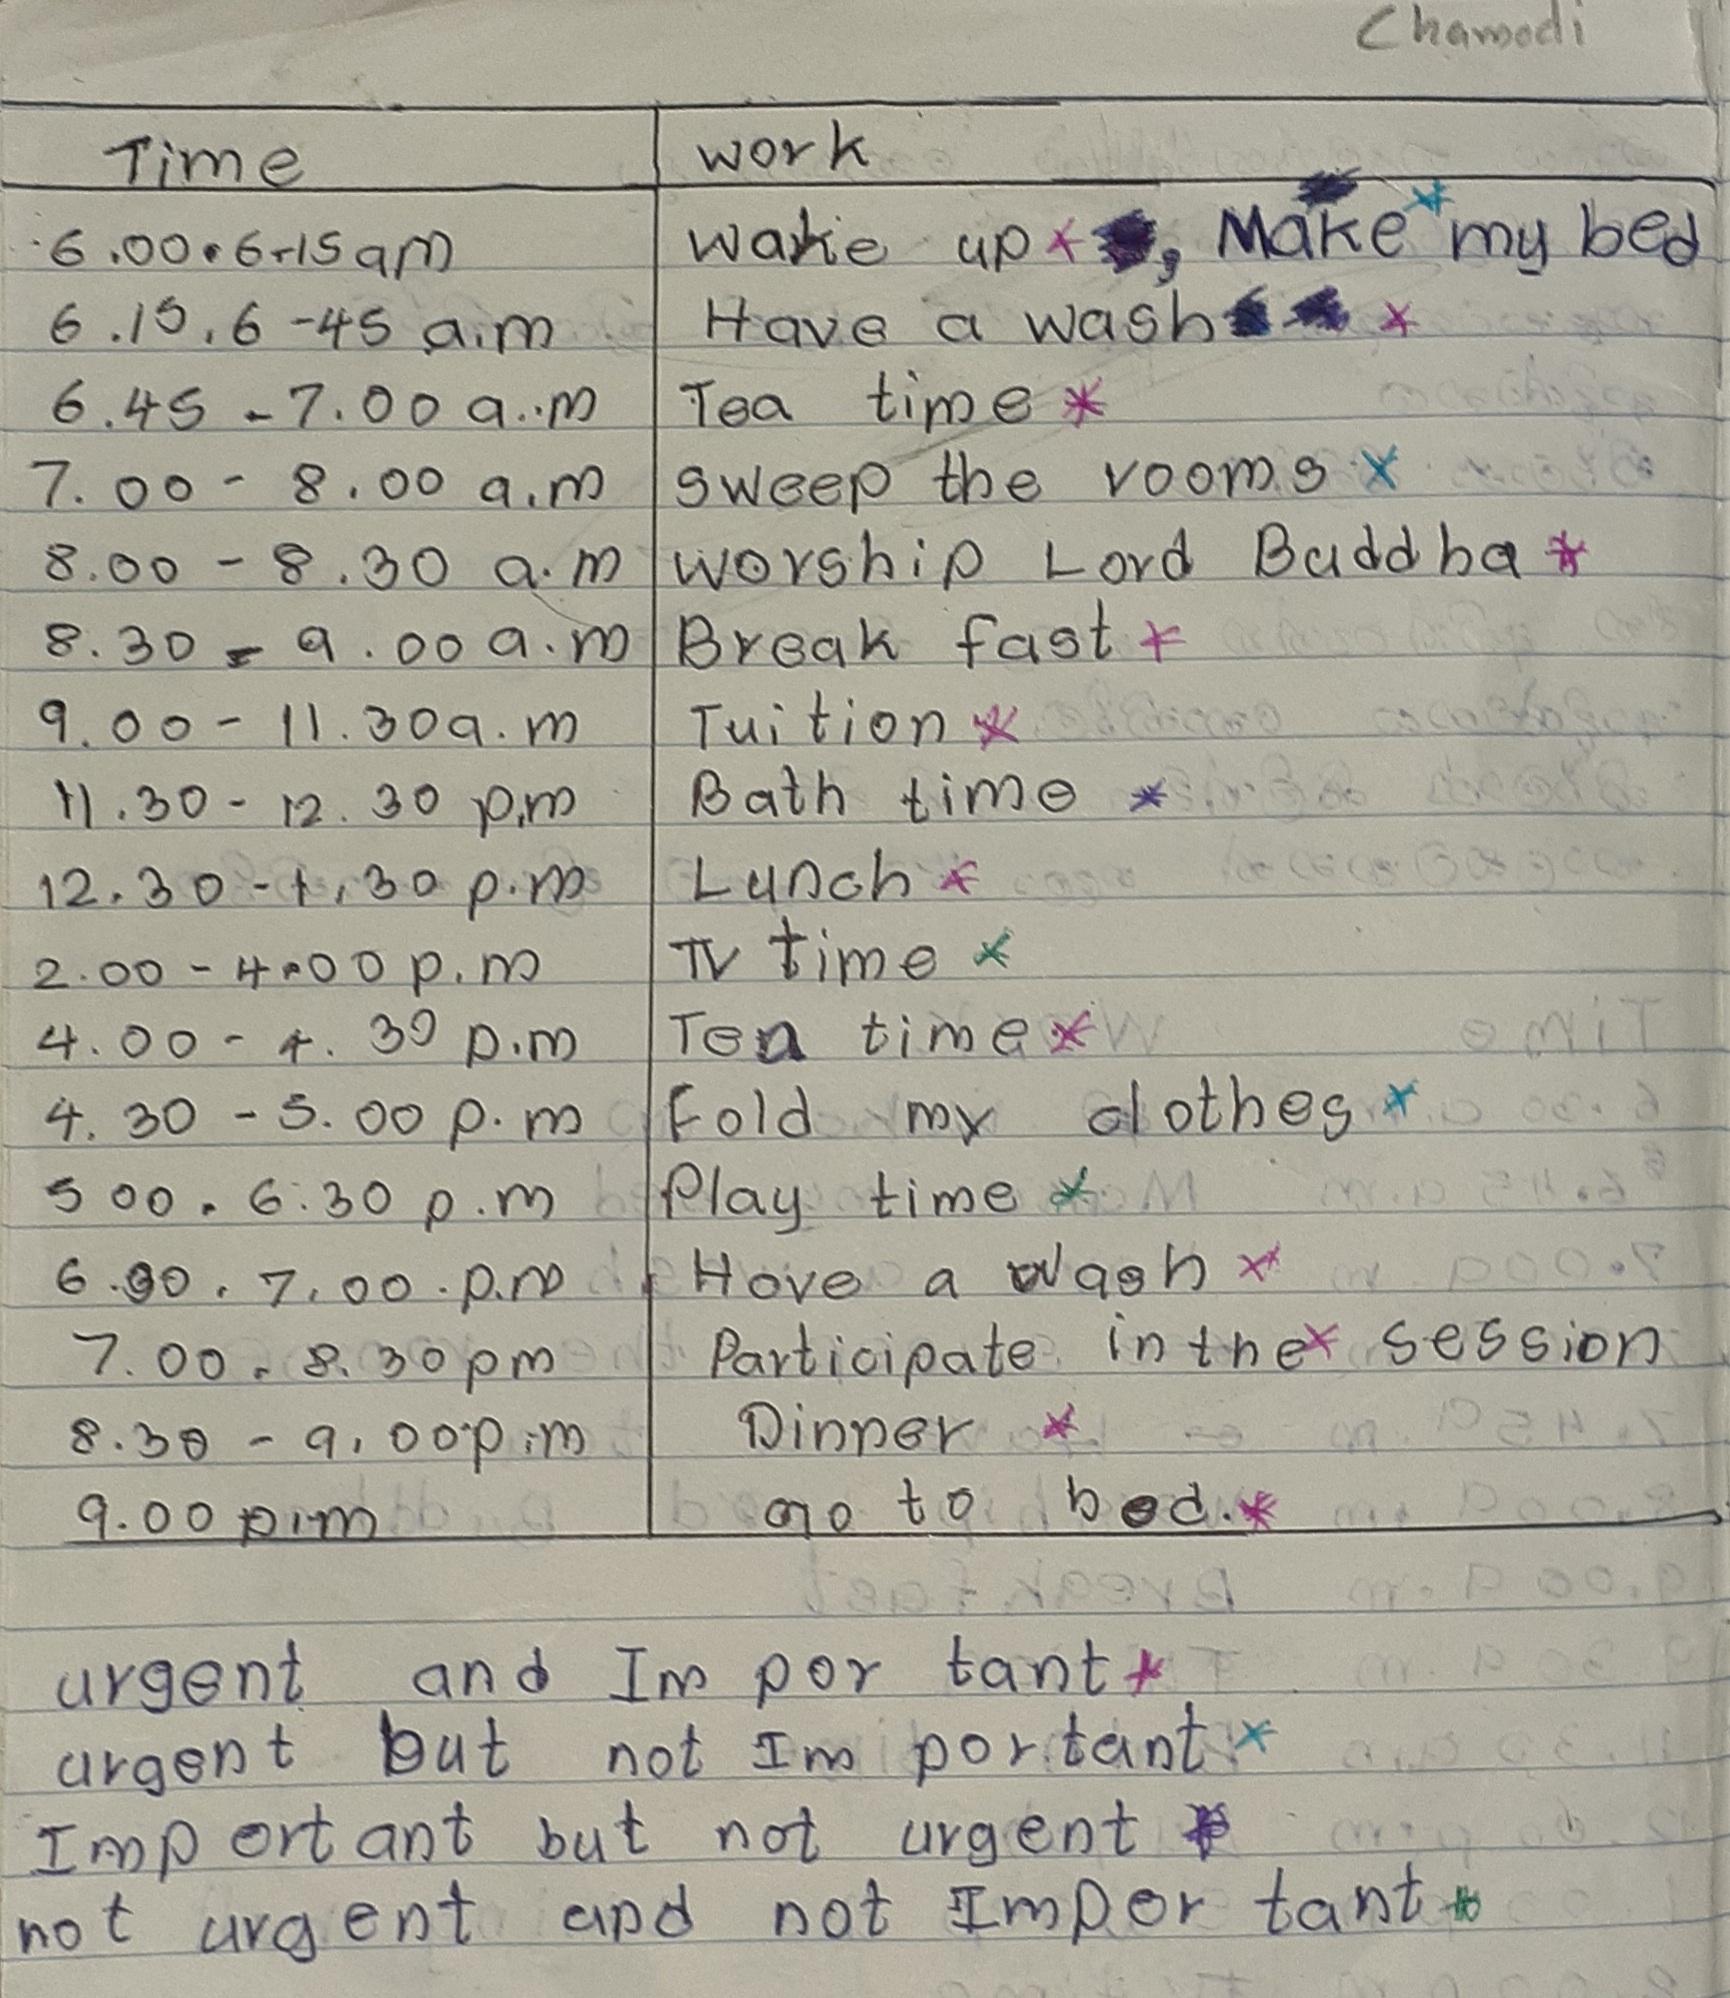 Chamodi
Time work
6.00.6-15am Wake up*, Make* my bed
6.15.6-45 a.m Have a wash *
6.45 - 7.00 a.m Tea time *
7.00 - 8.00 a.m sweep the rooms *
8.00 - 8.30 a.m worship Lord Buddha *
8.30 - 9.00 a.m Break fast *
9.00 - 11.30 a.m Tuition *
11.30 - 12.30 p.m Bath time *
12.30 - 1.30 p.m Lunch *
2.00 - 4.00 p.m TV time *
4.00 - 4.30 p.m Tea time *
4.30 - 5.00 p.m Fold my clothes *
5 00. 6:30 p.m Play time *
6.30. 7.00.p.m Have a wash *
7.00. 8.30 pm Participate in the* session
8.30 - 9.00 p.m Dinner *
9.00 p.m go to bed.*
urgent and Im por tant *
urgent but not Im portant *
Imp ort ant but not urgent *
not urgent and not Impor tant *